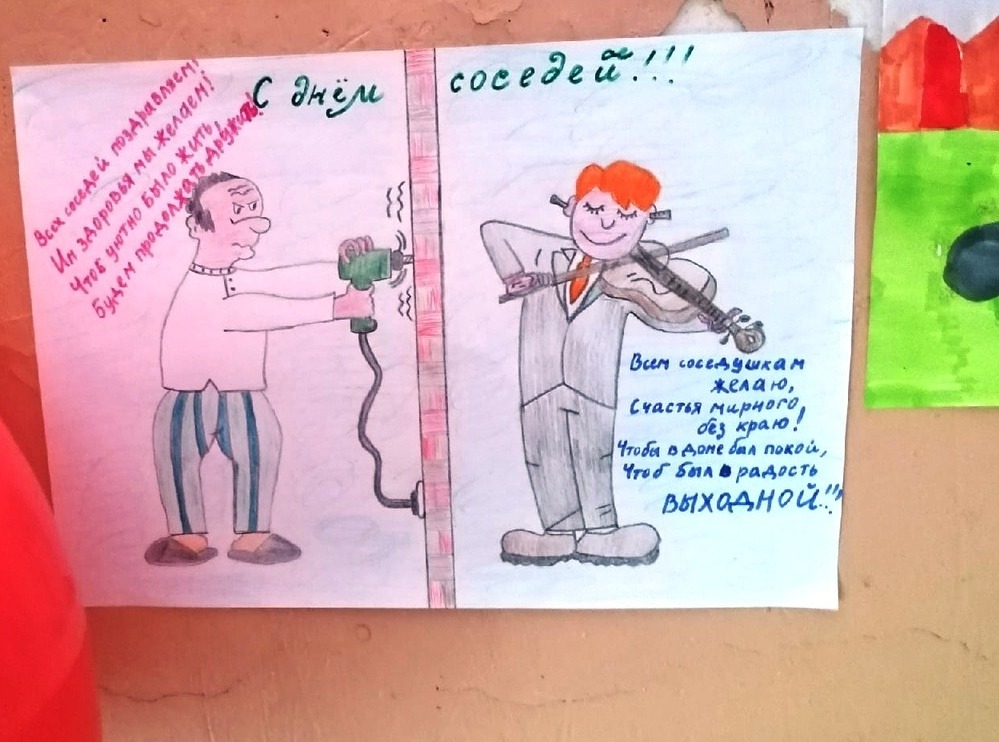 С днём соседей!!!
Всех соседей поздравляем!
Им здоровья мы желаем!
Чтоб уютно было жить,
Будем продолжать дружить!
Всем соседушкам
желаю,
Счастья мирного
без краю!
Чтобы в доме был покой,
Чтоб был в радость
ВЫХОДНОЙ!!!